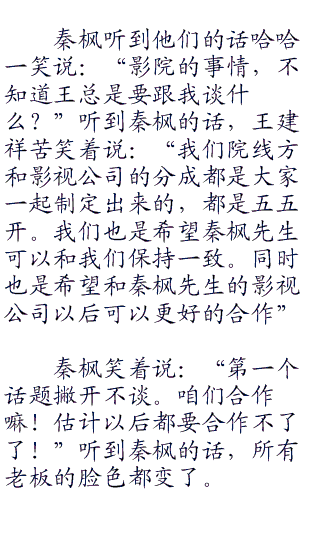 秦枫听到他们的话哈哈
一笑说：“影院的事情，不
知道王总是要跟我谈什
么？”听到秦枫的话，王建
祥苦笑着说：“我们院线方
和影视公司的分成都是大家
一起制定出来的，都是五五
开。我们也是希望秦枫先生
可以和我们保持一致。同时
也是希望和秦枫先生的影视
公司以后可以更好的合作”
秦枫笑着说：“第一个
话题撇开不谈。咱们合作
嘛！估计以后都要合作不了
了！”听到秦枫的话，所有
老板的脸色都变了。